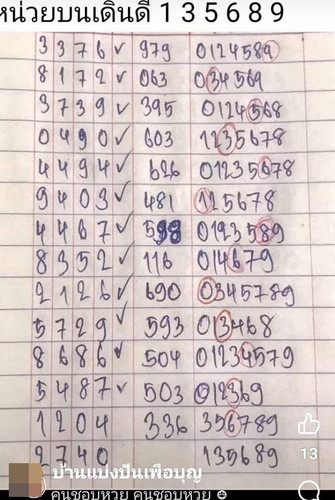 หน่วยบนเดินดี 1 3 5 6 8 9
3 3 7 6 ✓ 979 0124589
8 1 7 2 ✓ 063 034569
3 7 3 9 ✓ 395 0124568
0 4 9 0 ✓ 603 1235678
4 4 9 4 ✓ 626 01235678
9 4 0 3 ✓ 481 125678
4 4 6 7 ✓ 598 0123589
8 3 5 2 ✓ 116 014679
2 1 2 6 ✓ 690 0345789
5 7 2 9 ✓ 593 013468
8 6 8 6 ✓ 504 01234579
5 4 8 7 ✓ 503 012369
1 2 0 4 336 356789
2 7 4 0 135689
13
บ้านแบ่งปันเพื่อบุญ
คนชอบหวย คนชอบหวย